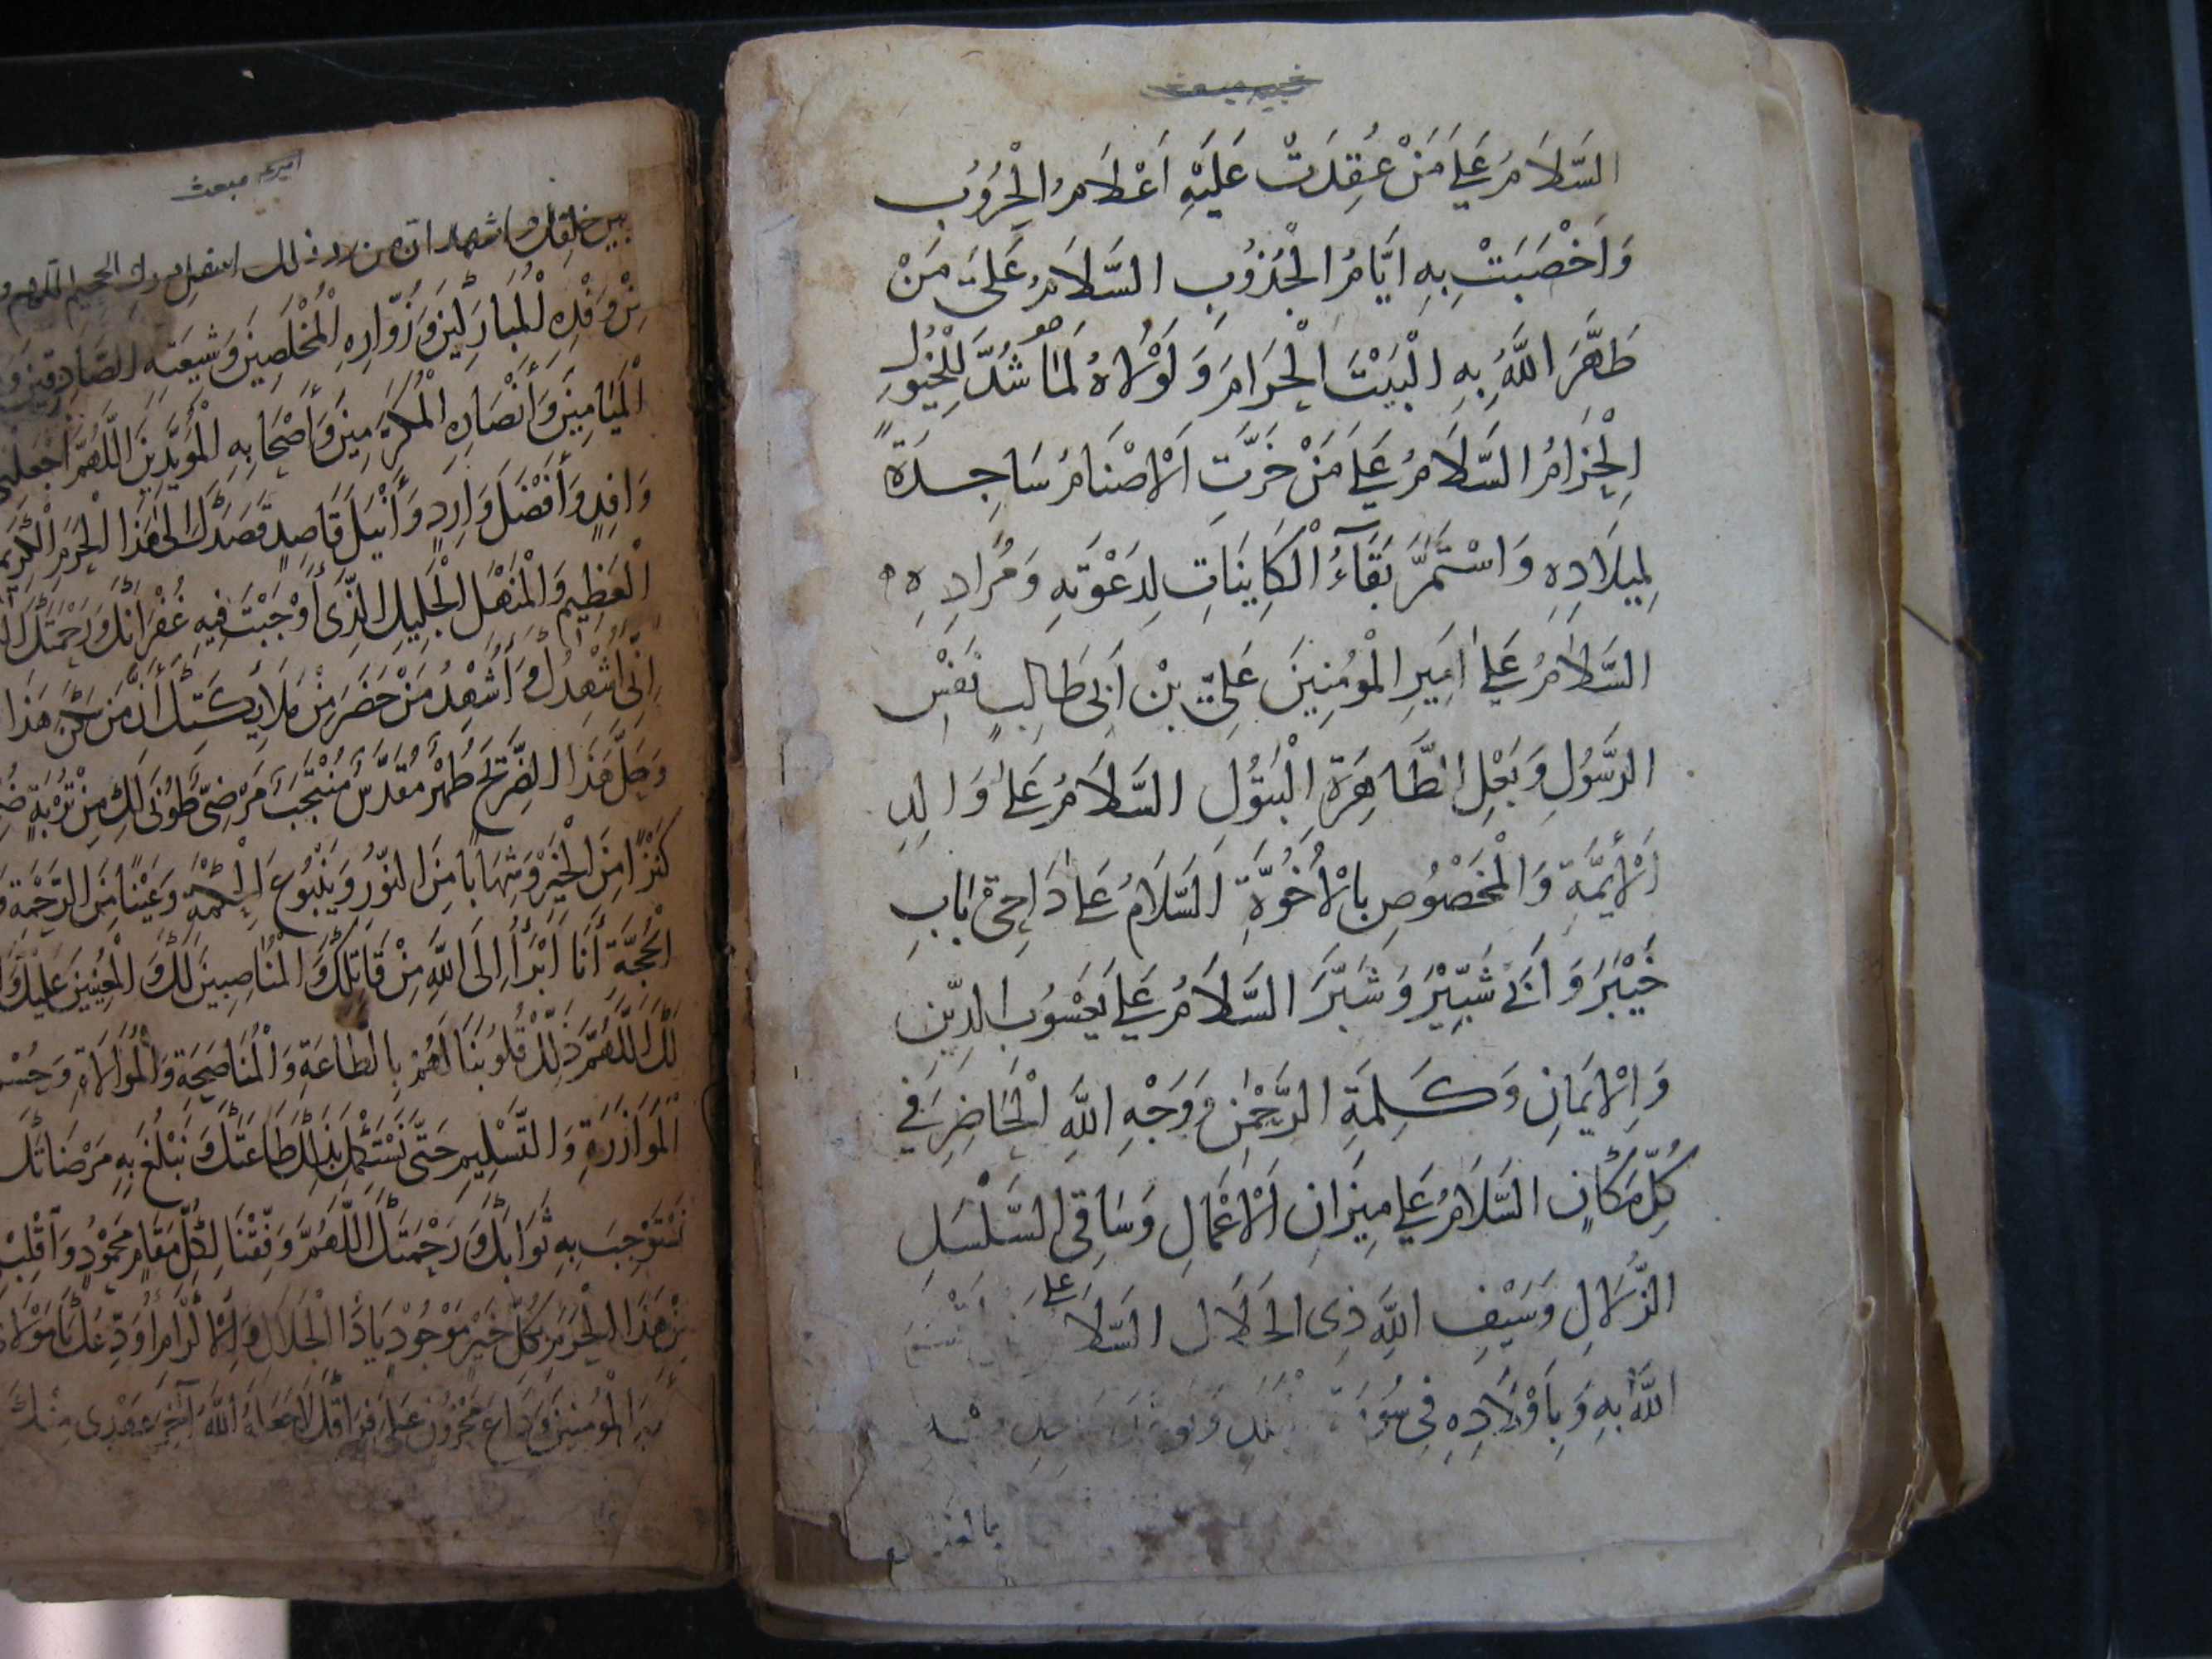 السَّلَامُ عَلَي مَنْ عُقِدَتْ عَلَيْهِ اَعْلَامُ الْحُرُوُبِ
وَاَخْصَبَتْ بِهِ اَيَّامُ الْجُدُوُبِ السَّلَامُ عَلَى مَنْ
طَهَّرَ اللّٰهُ بِهِ الْبَيْتَ الْحَرَامَ وَلَوْلَاهُ لَمَا شُدَّ لِلْخُيُوُلِ
الْحِزَامُ السَّلَامُ عَلَي مَنْ خَرَّتِ الْاَصْنَامُ سَاجِدَةً
لِمِيلَادِهِ وَاسْتَمَرَّ بَقَآءُ الْكَايِنَاتِ لِدَعْوَتِهِ وَمُرَادِهِ
السَّلَامُ عَلَي اَمِيرِ الْمُؤْمِنِينَ عَلِيّ بْنِ اَبِى طَالِبٍ نَفْسِ
الرَّسُوُلِ وَبَعْلِ الطَّاهِرَةِ الْبَتُوُلِ السَّلَامُ عَلٰى وَالِدِ
الْأَئِمَّةِ وَالْمَخْصُوُصِ بِالْأُخُوَّةِ اَلسَّلَامُ عَلٰى دَاحِىْ بَابِ
خَيْبَرَ وَاَبِى شَبِّيْرَ وَشَبَّرَ السَّلَامُ عَلَي يَعْسُوُبِ الدِّينِ
وَالْاِيمَانِ وَكَلِمَةِ الرَّحْمٰنِ وَوَجْهِ اللّٰهِ الْحَاضِرِ فِي
كُلِّ مَكَانٍ السَّلَامُ عَلَي مِيزَانِ الْاَعْمَالِ وَسَاقِى السَّلْسَلِ
الزُّلَالِ وَسَيْفِ اللّٰهِ ذِى الْجَلَالِ السَّلَا عَلَى
اللّٰهُ بِهِ وَبِاَوْلَادِهِ فِى سُوُرَةِ
امیریه مبعث
بين خلقك
وَفْدِهِ الْمُبَارَكِينَ وَزُوَّارِهِ الْمُخْلَصِينَ وَشِيعَتِهِ الصَّادِقِينَ
الْمَيَامِينَ وَأَنْصَارِهِ الْمُكَرَّمِينَ وَأَصْحَابِهِ الْمُؤَيَّدِينَ اَللَّهُمَّ اجْعَلْنِى
وَافِدٍ وَأَفْضَلَ وَارِدٍ وَأَنْبَلَ قَاصِدٍ قَصَدَكَ إِلَى هَذَا الْحَرَمِ الْكَرِيمِ
الْعَظِيمِ وَالْمَنْهَلِ الْجَلِيلِ الَّذِى أَوْجَبْتَ فِيهِ غُفْرَانَكَ وَرَحْمَتَكَ
اِنِّى أُشْهِدُكَ وَأُشْهِدُ مَنْ حَضَرَ مِنْ مَلَايِكَتِكَ أَنَّ مَنْ سَكَنَ هَذَا
وَحَلَّ هَذَا الضَّرِيحَ طُهْرٌ مُقَدَّسٌ مُنْتَجَبٌ مَرْضِىٌّ طُوُبَى لَكِ مِنْ تُرْبَةٍ
كَنْزًا مِنَ الْخَيْرِ وَشِهَابًا مِنَ النُّوُرِ وَيَنْبُوُعَ الْحِكْمَةِ وَعَيْنًا مِنَ الرَّحْمَةِ
الْحُجَّةِ أَنَا أَبْرَأُ إِلَى اللّٰهِ مِنْ قَاتِلِكَ وَالْمُنَاصِبِينَ لَكَ وَالْمُعِينِينَ عَلَيْكَ
لَكَ اَللَّهُمَّ ذَلِّلْ قُلُوُبَنَا لَهُمْ بِالطَّاعَةِ وَالْمُنَاصَحَةِ وَالْمُوَالَاةِ وَحُسْنِ
الْمُوَازَرَةِ وَالتَّسْلِيمِ حَتَّى نَسْتَكْمِلَ بِذَلِكَ طَاعَتَكَ وَنَبْلُغَ بِهِ مَرْضَاتَكَ
نَسْتَوْجِبَ بِهِ ثَوَابَكَ وَرَحْمَتَكَ اَللَّهُمَّ وَفِّقْنَا لِكُلِّ مَقَامٍ مَحْمُوُدٍ وَاَقْلِبْنِى
مِنْ هَذَا الْحَرَمِ بِكُلِّ خَيْرٍ مَوْجُوُدٍ يَا ذَا الْجَلَالِ وَالْاِكْرَامِ أُوَدِّعُكَ يَا مَوْلَاىَ
الْمُؤْمِنِينَ وَدَاعَ مَحْزُوُنٍ عَلَى فِرَاقِكَ لَا جَعَلَهُ اللّٰهُ آخِرَ عَهْدِى مِنْكَ